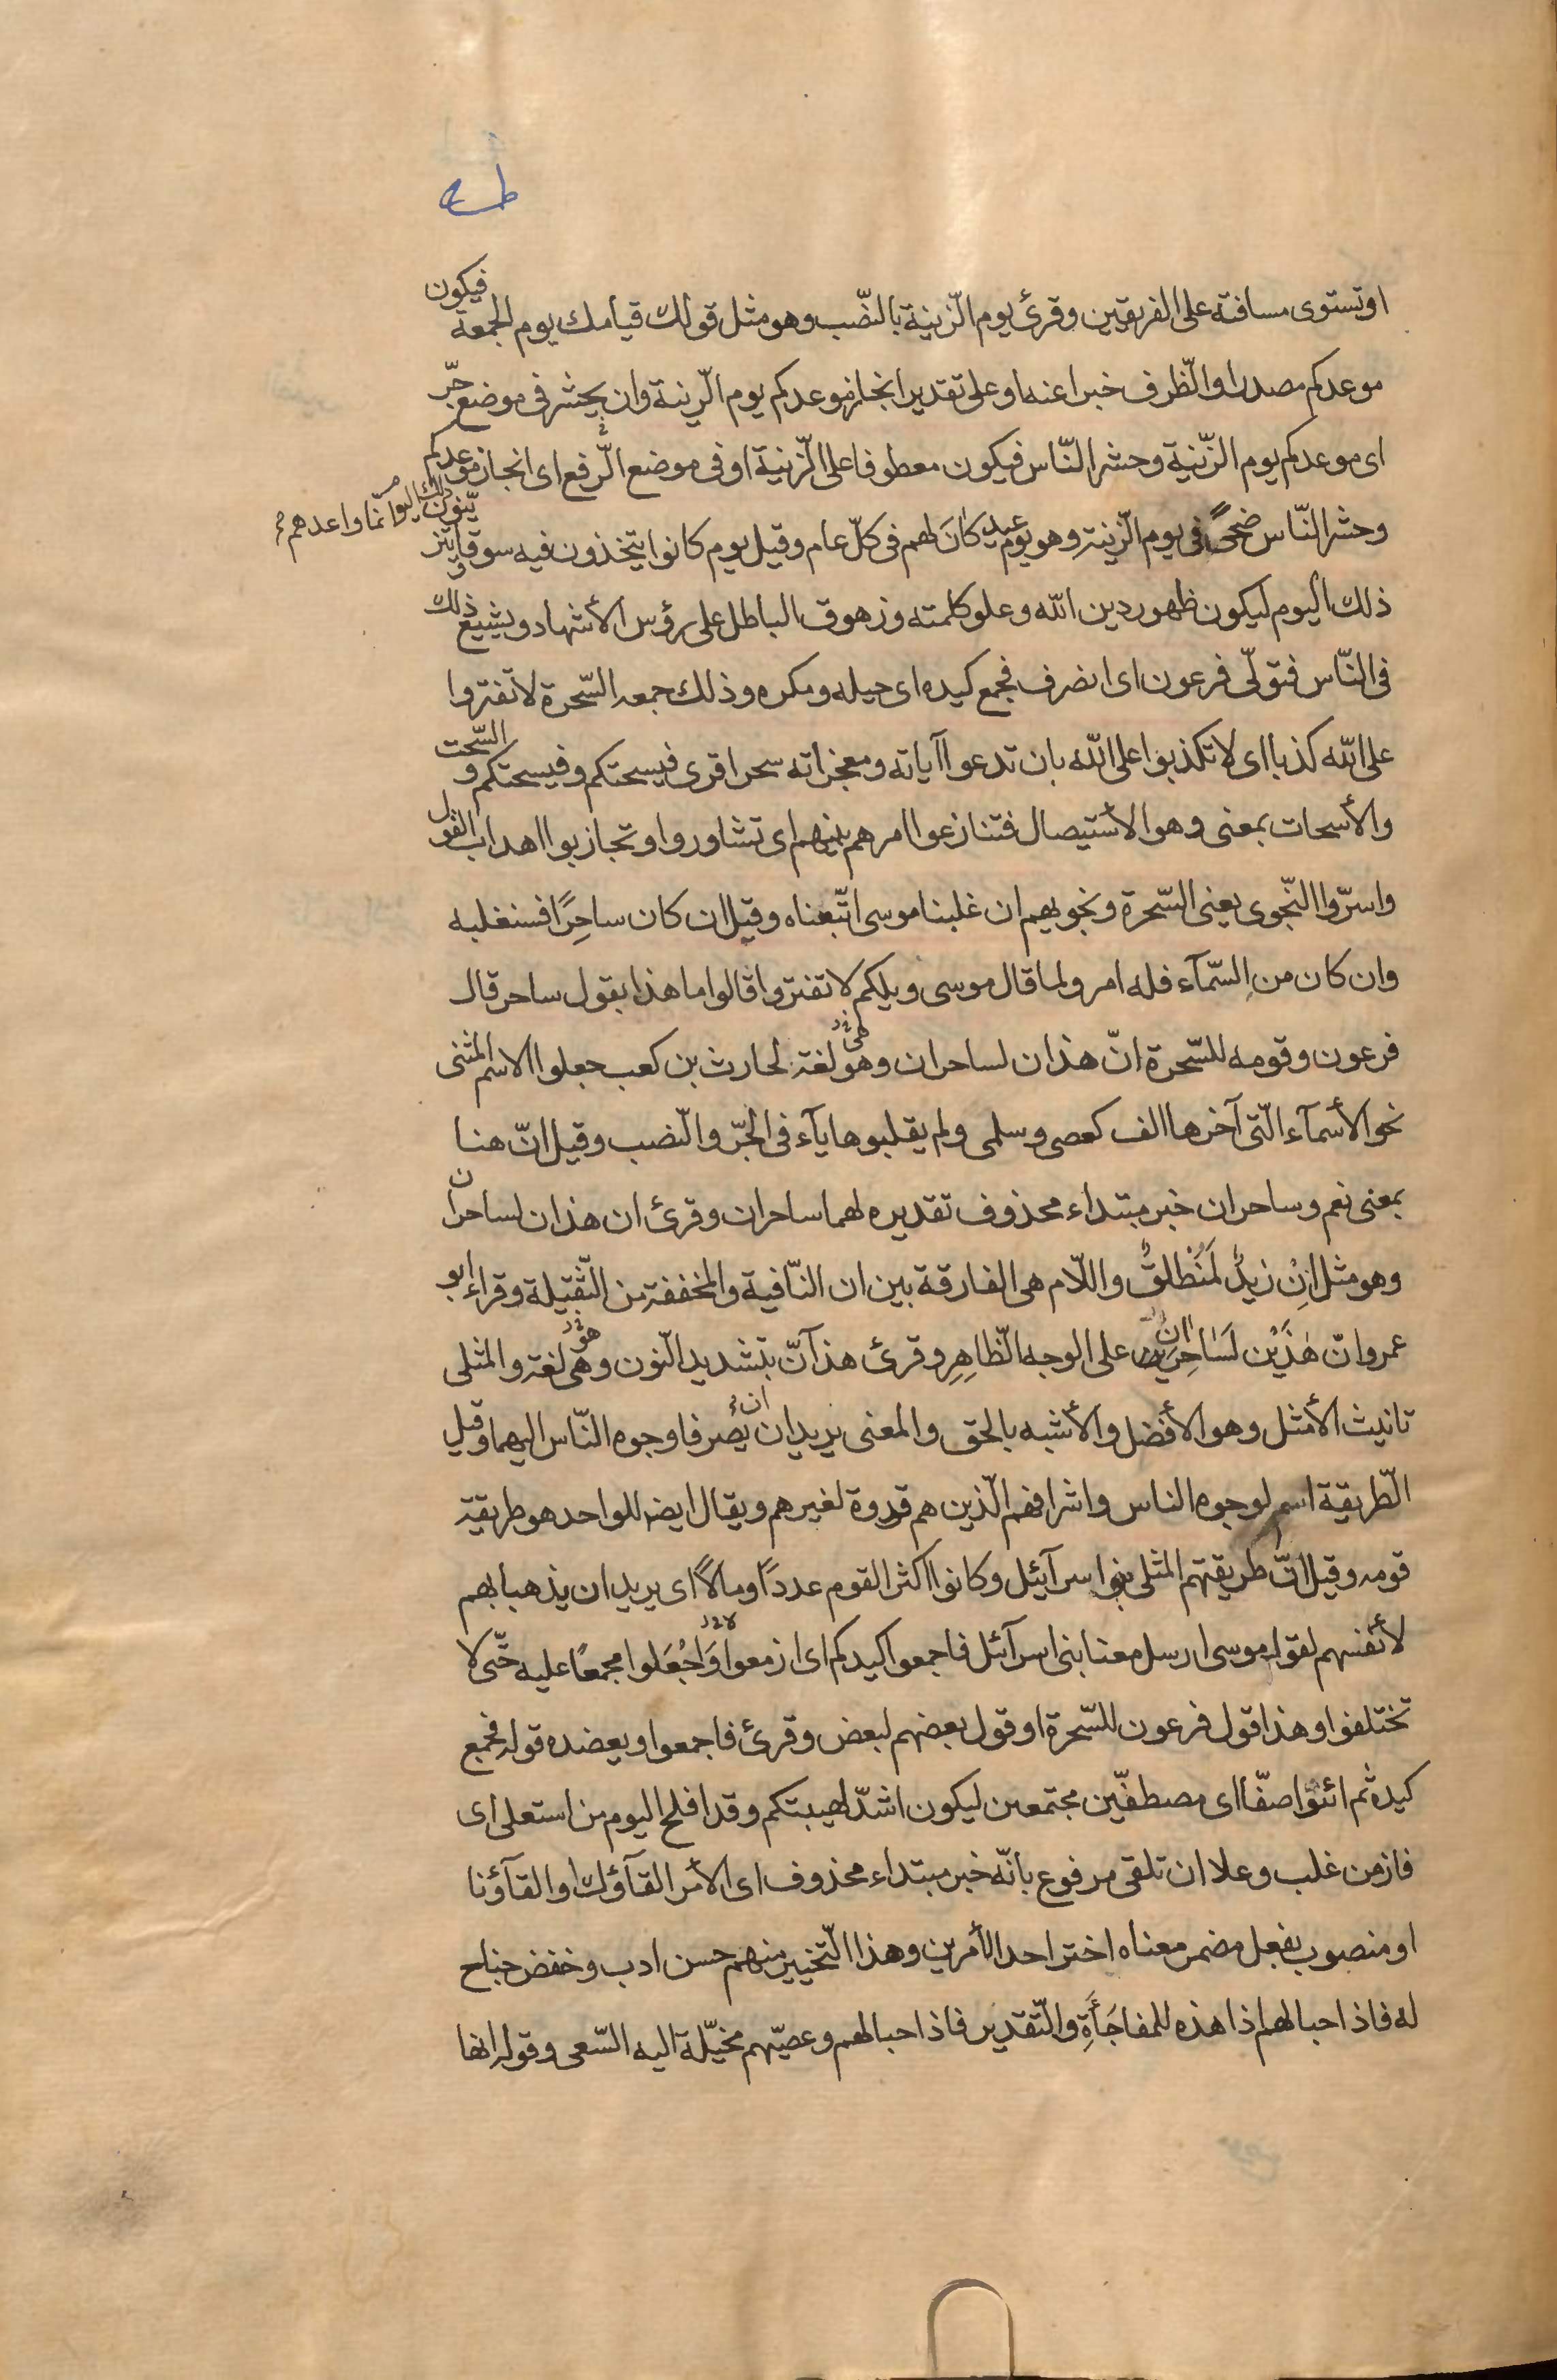 طه
او تستوى مسافته على الفريقين وقرئ يوم الزّينة بالنّصب وهو مثل قولك قيامك يوم الجمعة فيكون
موعدكم مصدرا والظّرف خبرا عنه او على تقدير انجاز موعدكم يوم الزّينة وان يحشر فى موضع جرّ
اى موعدكم يوم الزّينة وحشر النّاس فيكون معطوفا على الزّينة او فى موضع الرّفع اى انجاز موعدكم
وحشر النّاس ضحىً فى يوم الزّينة وهو يوم عيد كانَ لهم فى كلّ عام وقيل يوم كانوا يتّخذون فيه سوقا يتزيّنون ذلك اليوم وانّما واعدهم
ذلك اليوم ليكون ظهور دين الله وعلو كلمته وزهوق الباطل على رؤس الأشهاد ويشيع ذلك
فى النّاس فتولّى فرعون اى انصرف فجمع كيده اى حيله ومكره وذلك جمعه السّحرة لا تفتروا
على الله كذبا اى لا تكذبوا على الله بان تدعوا آياته ومعجزاته سحرا قرى فيسحتكم وفيسحتكم والسّحت
والأسحات بمعنى وهو الأستيصال فتنازعوا امرهم بينهم اى تشاوروا وتجازبوا اهداب القول
واسرّوا النّجوى يعنى السّحرة ونجويهم ان غلبنا موسى اتّبعناه وقيل ان كان ساحِرًا فسنغلبه
وان كان من السّمآء فله امر ولما قال موسى ويلكم لا تفتروا قالوا ما هذا بقول ساحر قال
فرعون وقومه للسّحرة انّ هذان لساحران وهو هى لغة لحارث بن كعب جعلوا الاسم المثنى
نحو الأسمآء الّتى آخرها الف كعصى وسلمى ولم يقلبوها يآء فى الجرّ والنّصب وقيل انّ هنا
بمعنى نعم وساحران خبر مبتداء محذوف تقديره لهما ساحران وقرئ ان هذان لساحران
وهو مثل اِنْ زيدٌ لَمُنْطلقٌ واللّام هى الفارقة بين ان النّافية والمخففة من الثّقيلة وقراء ابو
عمرو انّ هٰذَيْن لَسَاحِران على الوجه الظّاهِرِ وقرئ هذآنّ بتشديد النّون وهى هو لغة والمثلى
تانيث الأمثل وهو الأفضل والأشبه بالحق والمعنى يريدان ان يصرفا وجوه النّاس اليهما وقيل
الطّريقة اسم لوجوه الناس واشرافهم الّذين هم قدوة لغيرهم ويقال ايضا للواحد هو طريقة
قومه وقيل انّ طريقتهم المثلى بنوا سرآئيل وكانوا اكثر القوم عددًا ومالًا اى يريدان ان يذهبا بهم
لأنفسهم لقول موسى ارسل معنا بنى اسرآئل فاجمعوا كيدكم اى ازمعوا وَاجْعَلوا مجمعًا عليه حتّى لا
تختلفوا وهذا قول فرعون للسّحرة او قول بعضهم لبعض وقرئ فاجمعوا ويعضده قوله فجمع
كيده ثم ائتوا صفّا اى مصطفّين مجتمعين ليكون اشدّ لهيبتكم وقد افلح اليوم من استعلى اى
فاز من غلب وعلا ان تلقى مرفوع بانّه خبر مبتداء محذوف اى الأمر القآؤك او القآؤنا
او منصوب بفعل مضمر معناه اختر احد الأمرين وهذا التّخيير منهم حسن ادب وخفض جناح
له فاذا حبالهم اذا هذه للمفاجَأَةِ والتّقدير فاذا حبالهم وعصيّهم مخيّلة اليه السّعى وقوله انها